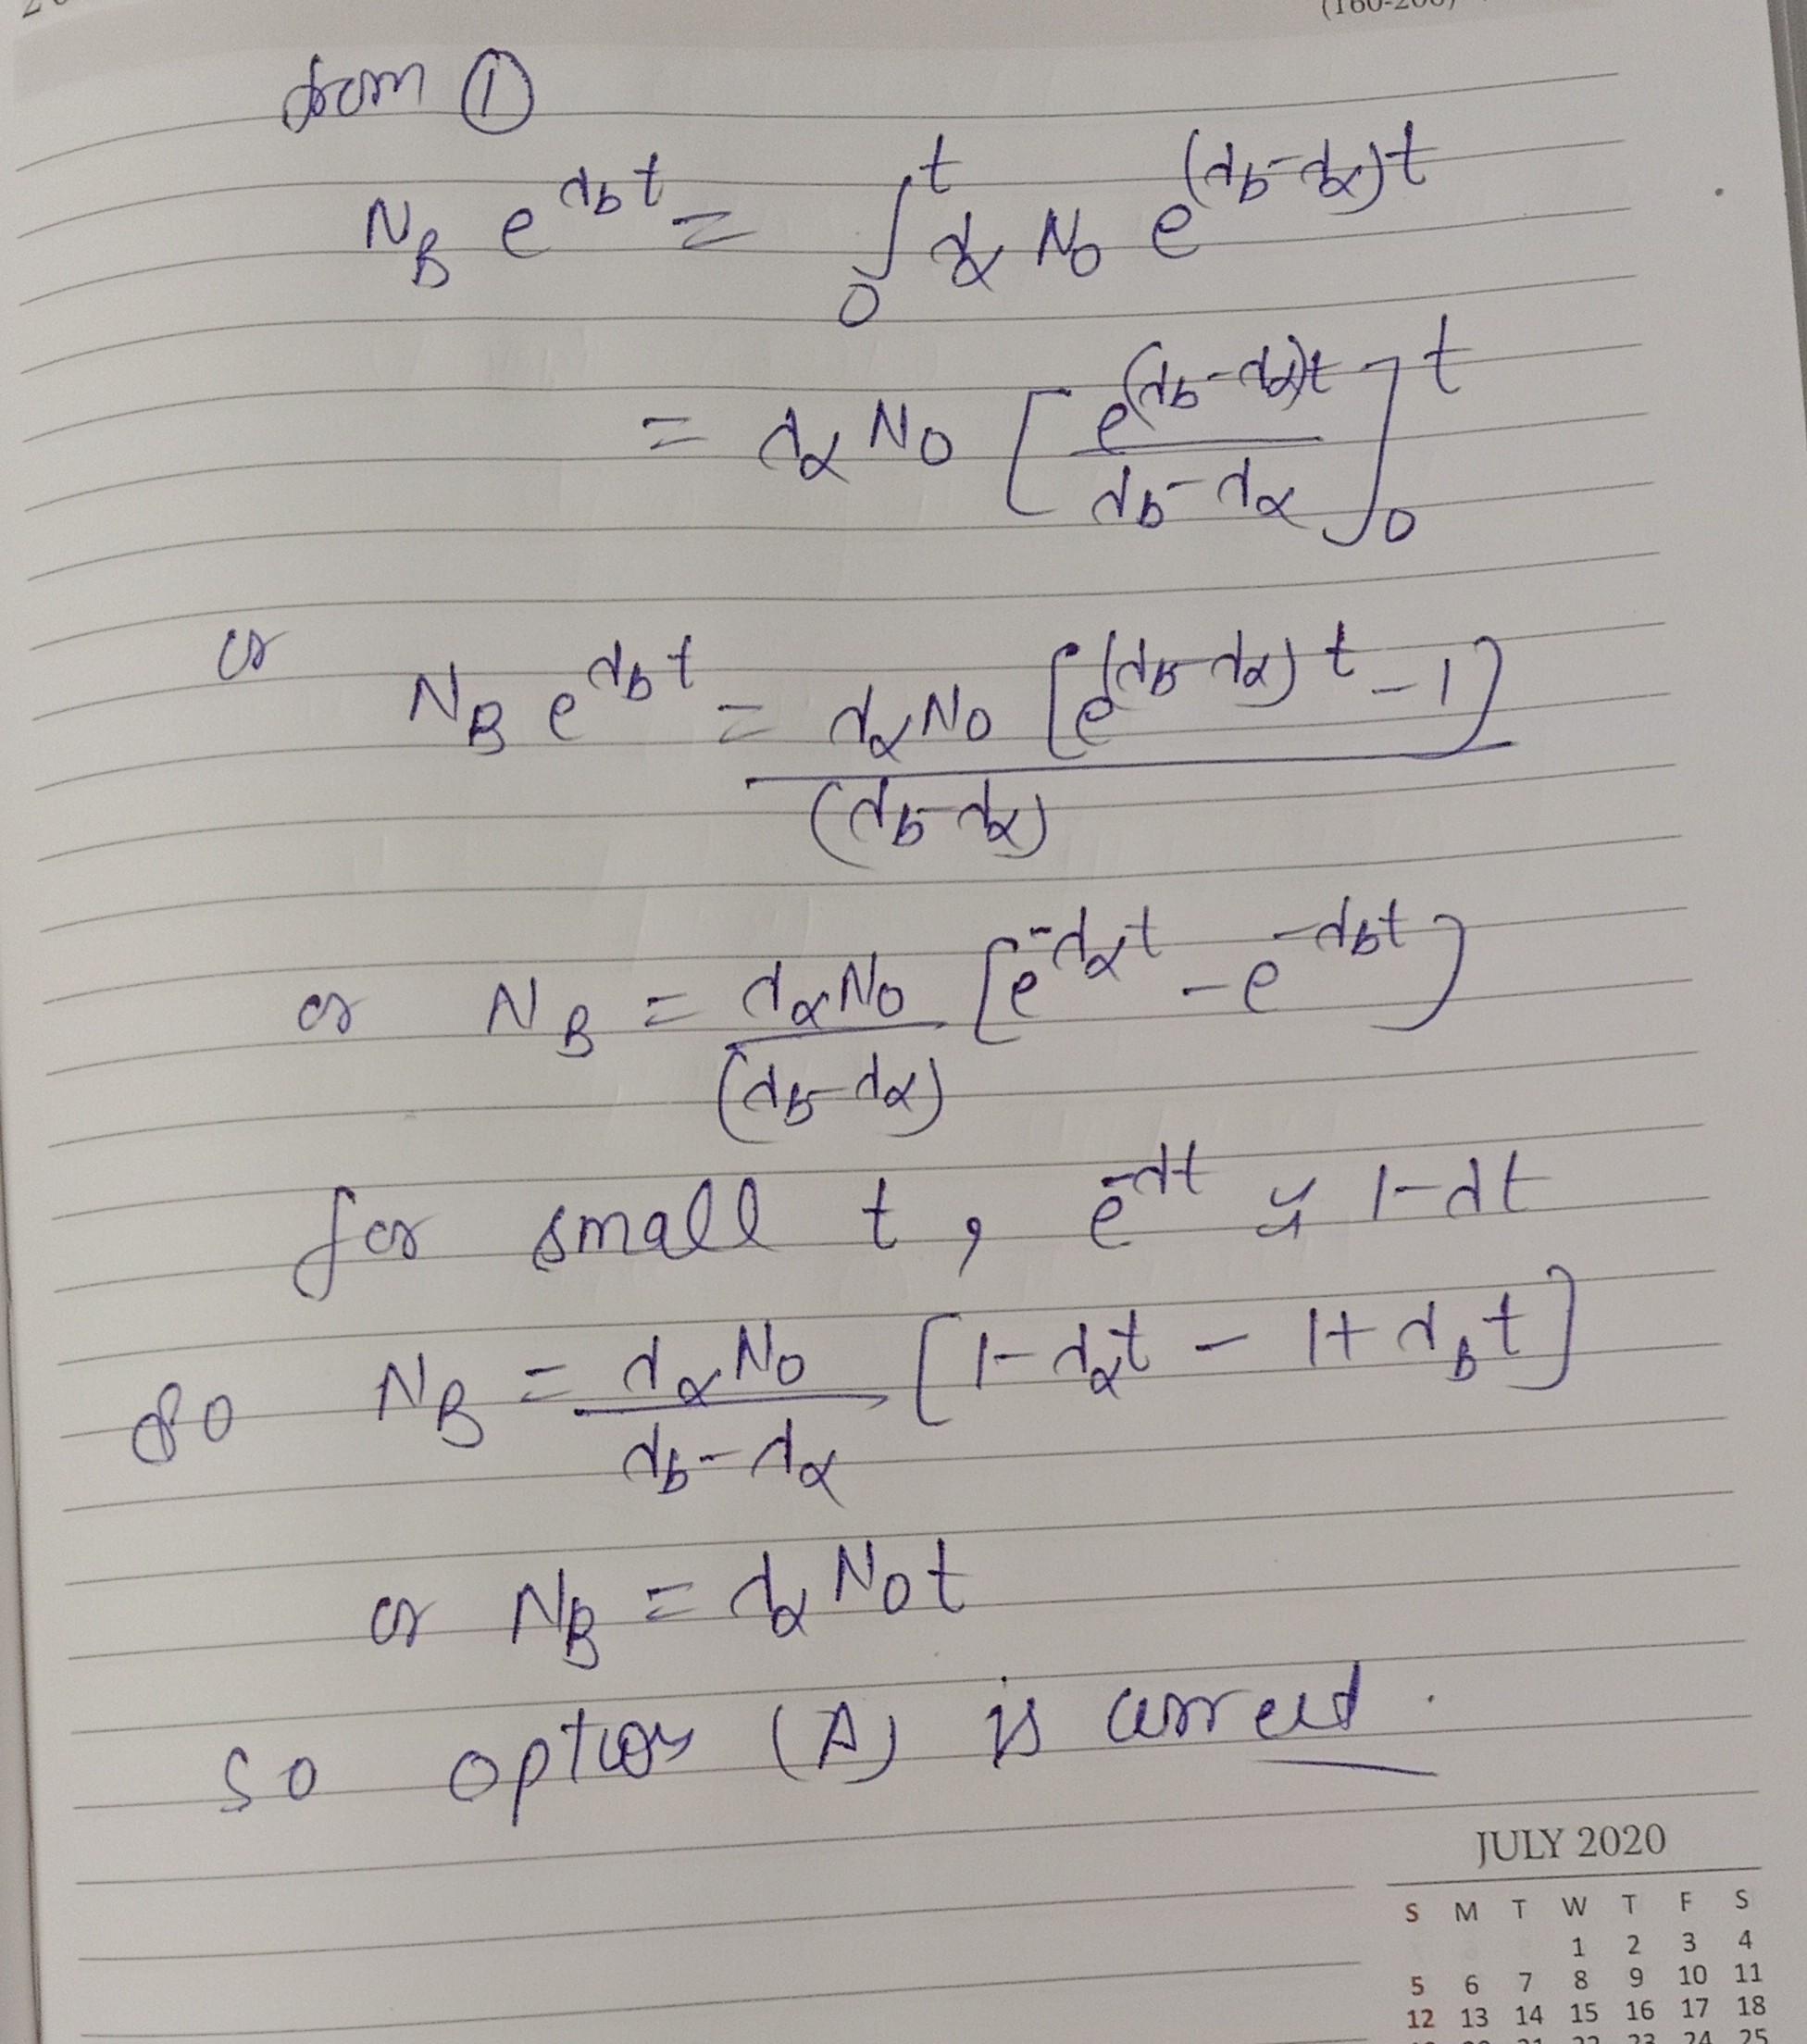 (160-206)
from ①
N_B e^{λ_b t} = ∫_0^t λ_α N_0 e^{(λ_b-λ_α)t}
= λ_α N_0 [e^{(λ_b-λ_α)t} / λ_b-λ_α]_0^t
or N_B e^{λ_b t} = λ_α N_0 [e^{(λ_b-λ_α)t} - 1] / (λ_b-λ_α)
or N_B = λ_α N_0 / (λ_b-λ_α) [e^{-λ_α t} - e^{-λ_b t}]
for small t, e^{-λt} ≈ 1-λt
so N_B = λ_α N_0 / λ_b-λ_α [1-λ_α t - 1+λ_b t]
or N_B = λ_α N_0 t
so option (A) is correct.
JULY 2020
S M T W T F S
1 2 3 4
5 6 7 8 9 10 11
12 13 14 15 16 17 18
22 23 24 25